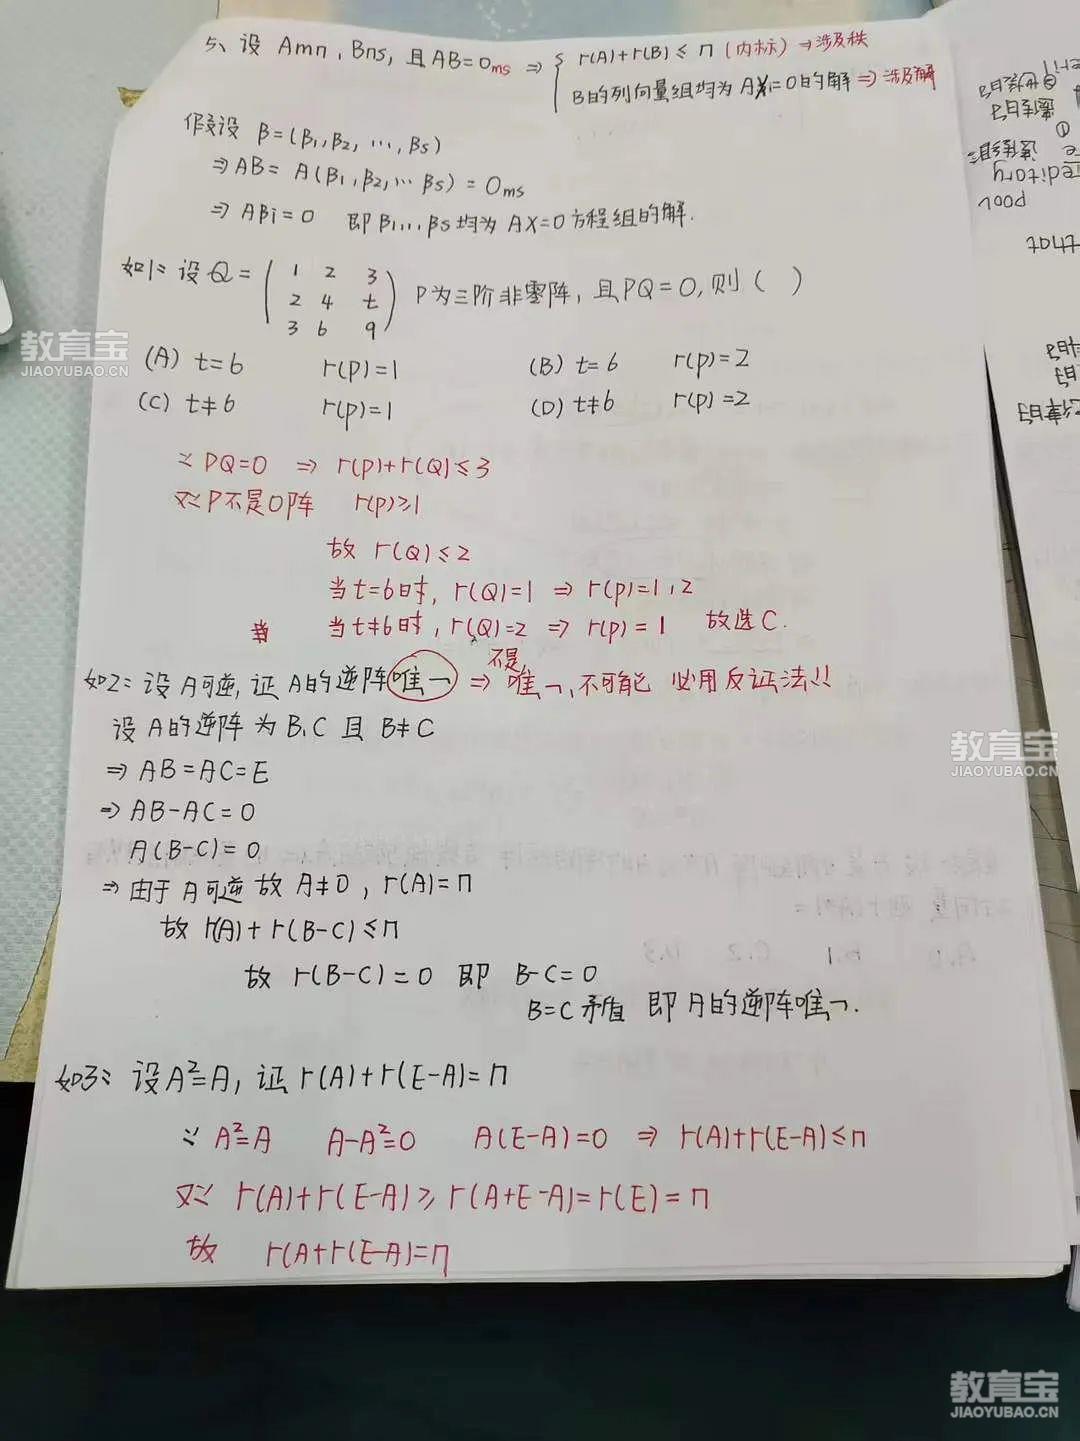 5、设 Amn, Bns, 且AB=0ms ⇒ { r(A)+r(B)≤n (内标) ⇒涉及秩
B的列向量组均为AX=0的解⇒涉及解
假设 B=(β1,β2, …, βs)
⇒AB= A(β1,β2,… βs) = 0ms
⇒ Aβi=0 即β1…,βs均为AX=0方程组的解.
如1: 设Q= ( 1 2 3
2 4 t
3 6 9 ) P为三阶非零阵, 且PQ=0,则 ( )
(A) t=6 r(P)=1 (B) t=6 r(P)=2
(C) t≠6 r(P)=1 (D) t≠6 r(P)=2
∵ PQ=0 ⇒ r(P)+r(Q)≤3
又∵P不是0阵 r(P)≥1
故 r(Q)≤2
当t=6时, r(Q)=1 ⇒ r(P)=1,2
当t≠6时, r(Q)=2 ⇒ r(P)=1 故选C.
如2: 设A可逆, 证A的逆阵唯一 ⇒ 唯一、不可能 必用反证法!!
不是
设A的逆阵为B、C 且 B≠C
⇒ AB=AC=E
⇒ AB-AC=0
A(B-C)=0
⇒ 由于A可逆 故 A≠0, r(A)=n
故 r(A)+r(B-C)≤n
故 r(B-C)=0 即 B-C=0
B=C矛盾 即A的逆阵唯一.
如3: 设A²=A, 证 r(A)+r(E-A)=n
∵ A²=A A-A²=0 A(E-A)=0 ⇒ r(A)+r(E-A)≤n
又∵ r(A)+r(E-A)≥r(A+E-A)=r(E)=n
故 r(A+r(E-A)=n
教育宝
JIAOYUBAO.CN
教育宝
JIAOYUBAO.CN
教育宝
JIAOYUBAO.CN